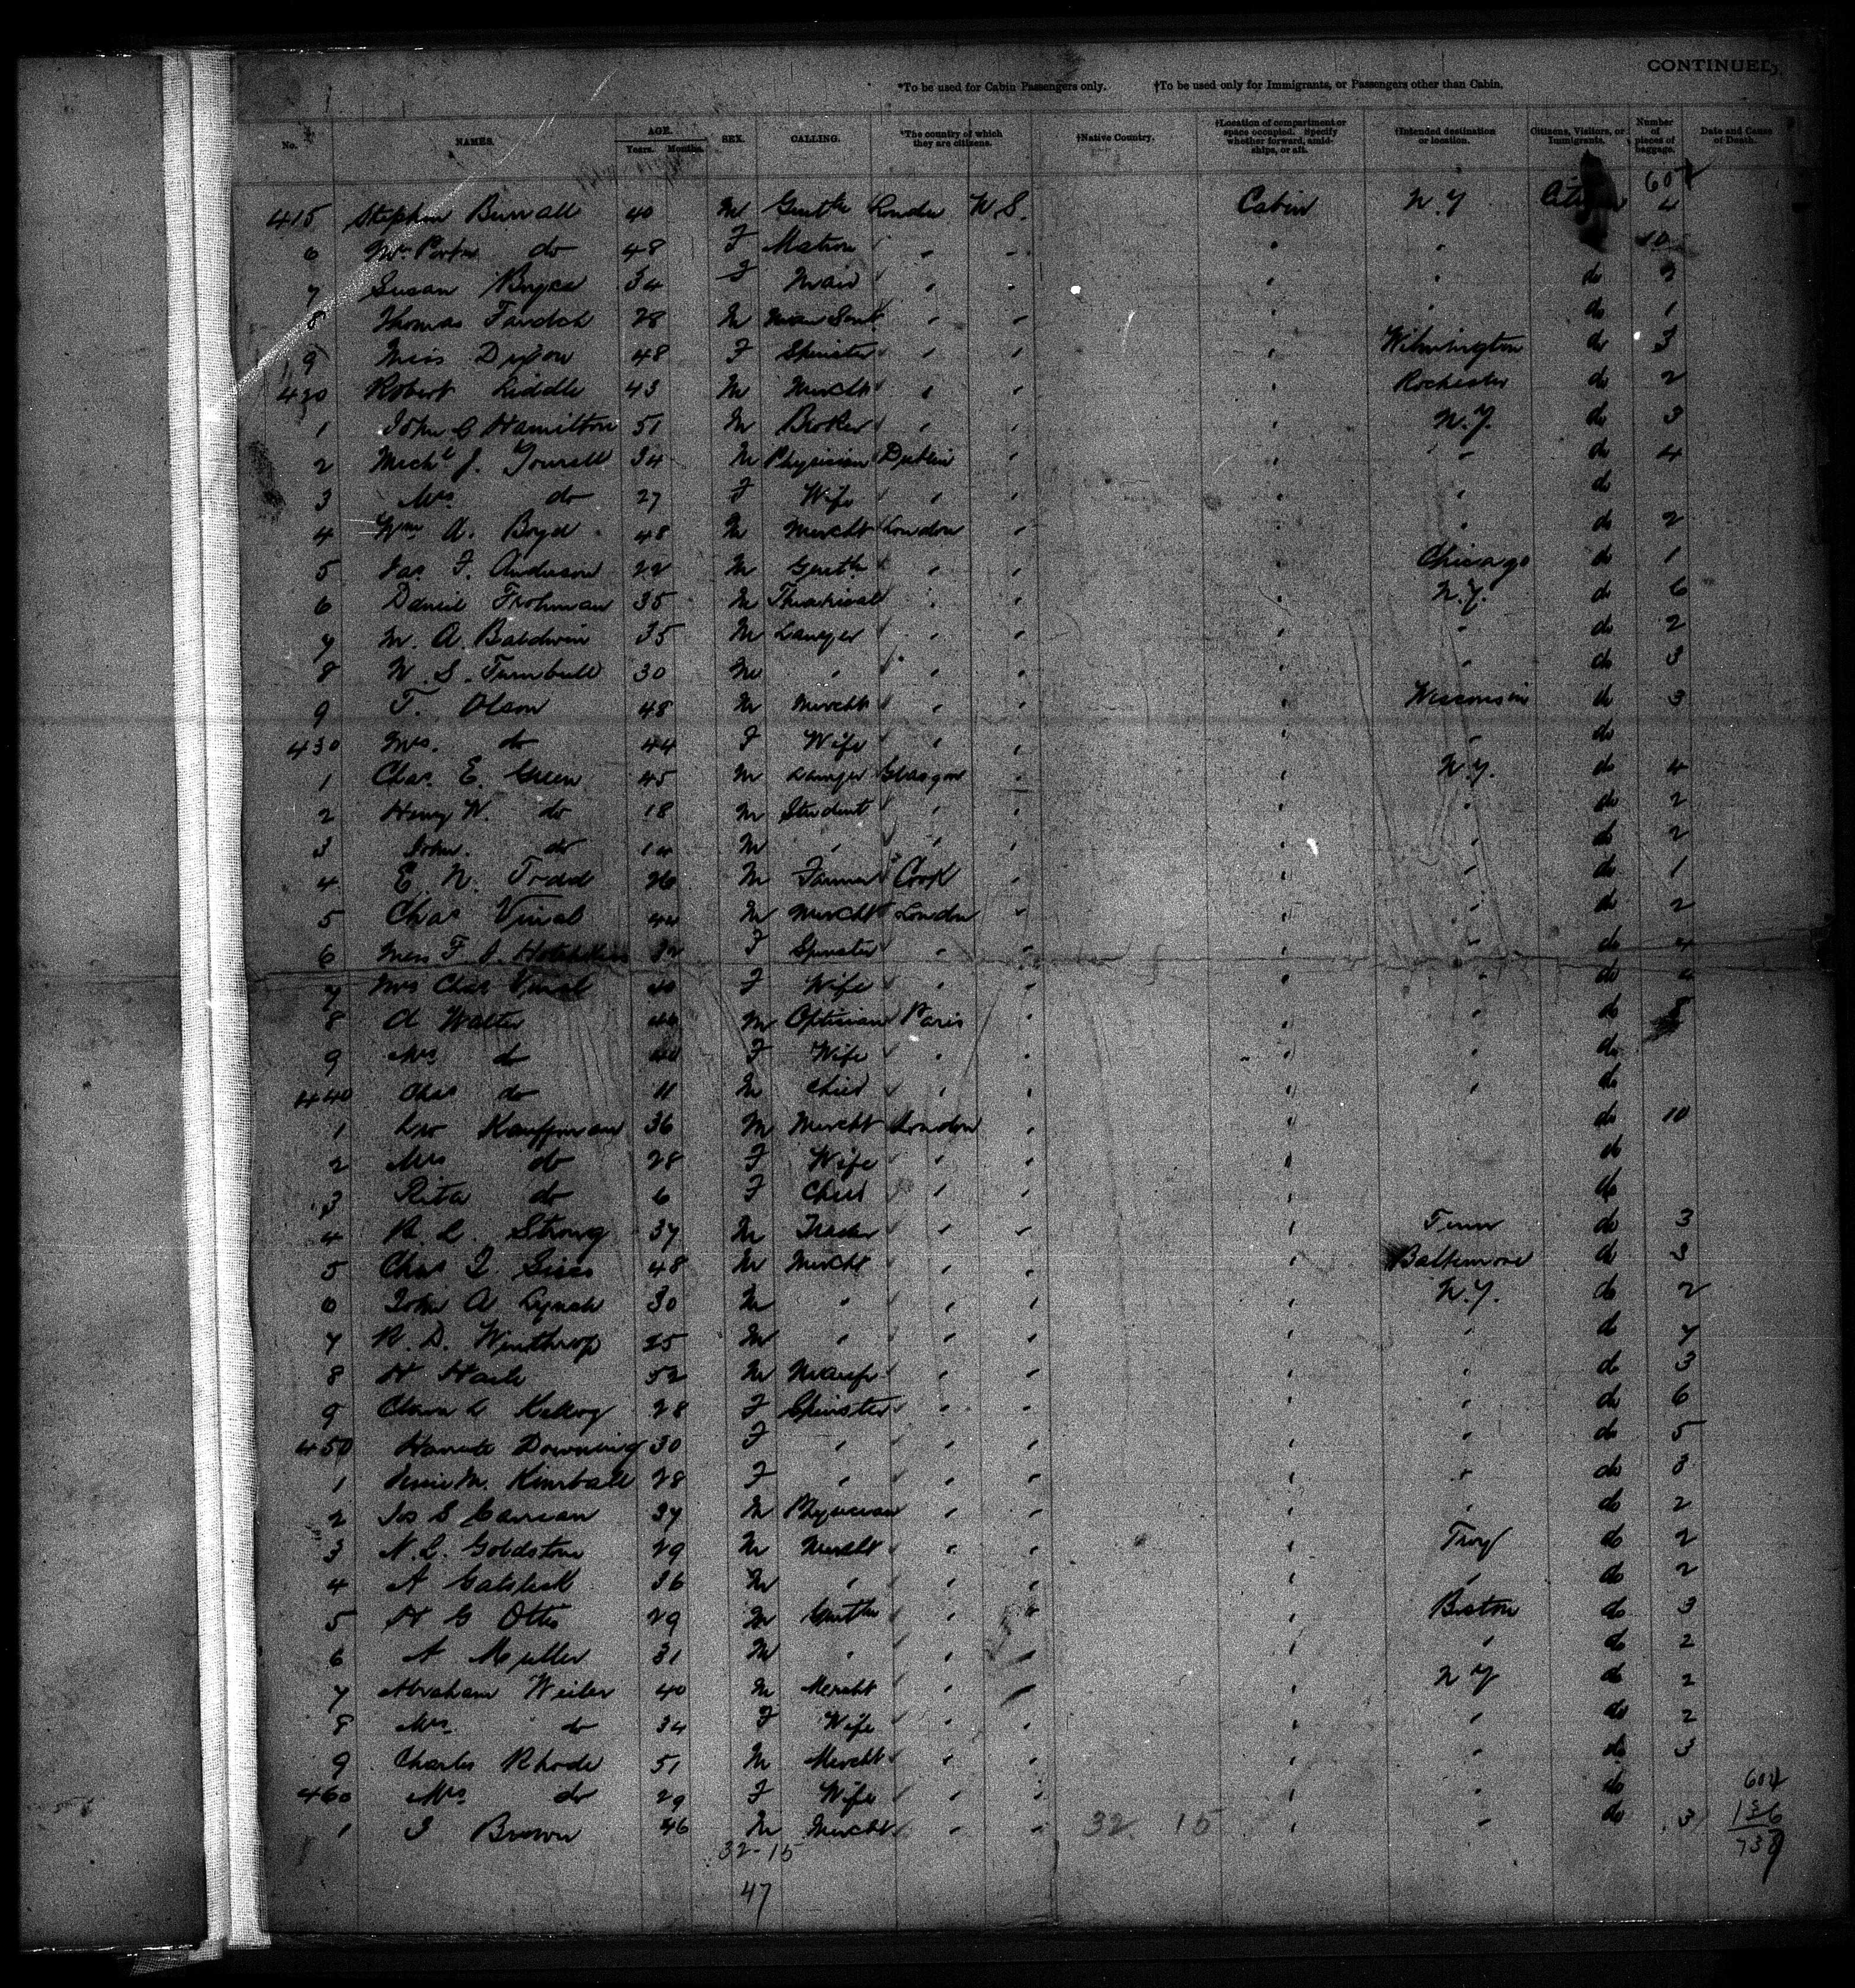 CONTINUED,
*To be used for Cabin Passengers only. †To be used only for Immigrants, or Passengers other than Cabin.
No. NAMES. AGE. Years. Months. SEX. CALLING. *The country of which they are citizens. †Native Country. †Location of compartment or space occupied. Specify whether forward, amidships, or aft. †Intended destination or location. Citizens, Visitors, or Immigrants. Number of pieces of baggage. Date and Cause of Death.
415 Stephen 40 M Gentn London U.S. Cabin N.Y 4
6 do 48 F Matron " " " " 10
7 Susan 34 F Maid " " " " do 2
8 Thomas 28 M Man Sevt " " " " do 1
9 Miss Dixon 48 F Spinster " " " Wilmington do 3
420 Robert Liddle 43 M Mercht " " " Rochester do 2
1 John C Hamilton 51 M Broker " " " N.Y. do 3
2 Michl J. 34 M Physician Dublin " " " do 4
3 Mrs do 27 F Wife " " " " do
4 Wm A. Boyd 48 M Mercht London " " " do 2
5 Jas F. Anderson 22 M Gentn " " " Chicago do 1
6 Daniel Frohman 35 M Theatrical " " " N.Y. do 6
7 M. A. Baldwin 35 M Lawyer " " " " do 2
8 W. S. Turnbull 30 M " " " " " do 3
9 T. Olson 48 M Mercht " " " Wisconsin do 3
430 Mrs. do 44 F Wife " " " " do
1 Chas. E. Green 45 M Lawyer Glasgow " " N.Y. do 4
2 Henry W. do 18 M Student " " " " do 2
3 John. do 14 M " " " " " do 2
4 E. N. Todd 26 M Farmer Cork " " " do 1
5 Chas Vinal M Mercht London " " " do 2
6 Miss F. Hotchkiss 32 F Spinster " " " " do 4
7 Mrs Chas Vinal 40 F Wife " " " " do
8 A Walter M Optician Paris " " " do
9 Mrs do F Wife " " " " do
440 Chas do 11 M Child " " " " do
1 Leo Kauffmann 36 M Mercht London " " do 10
2 Mrs do 28 F Wife " " " do
3 Rita do 6 F Child " " " do
4 R. L. Strong 37 M " " " Tenn do 3
5 Chas 48 M Mercht " " " Baltimore do 3
6 John A Lynch 30 M " " " " N.Y. do 2
7 R. D. Winthrop 25 M " " " " " do 7
8 H 52 M Manfr " " " " do 3
9 Clara L Kellog 28 F Spinster " " " " do 6
450 Downing 30 F " " " " " do 5
1 M. Kimball 28 F " " " " " do 3
2 Jos S 37 M Physician " " " " do 2
3 N. L. Goldstone 29 M Mercht " " " Troy do 2
4 A 36 M " " " " " do 2
5 H G Otis 29 M Gentn " " " Boston do 3
6 A Muller 31 M " " " " " do 2
7 Abraham Weiler 40 M Mercht " " " N Y do 2
8 Mrs. do 34 F Wife " " " " do 2
9 Charles Rhode 51 M Mercht " " " " do 3
460 Mrs do 29 F Wife " " " " do
1 J Brown 46 M Mercht " " 32 15 " " do 3
32-15
47